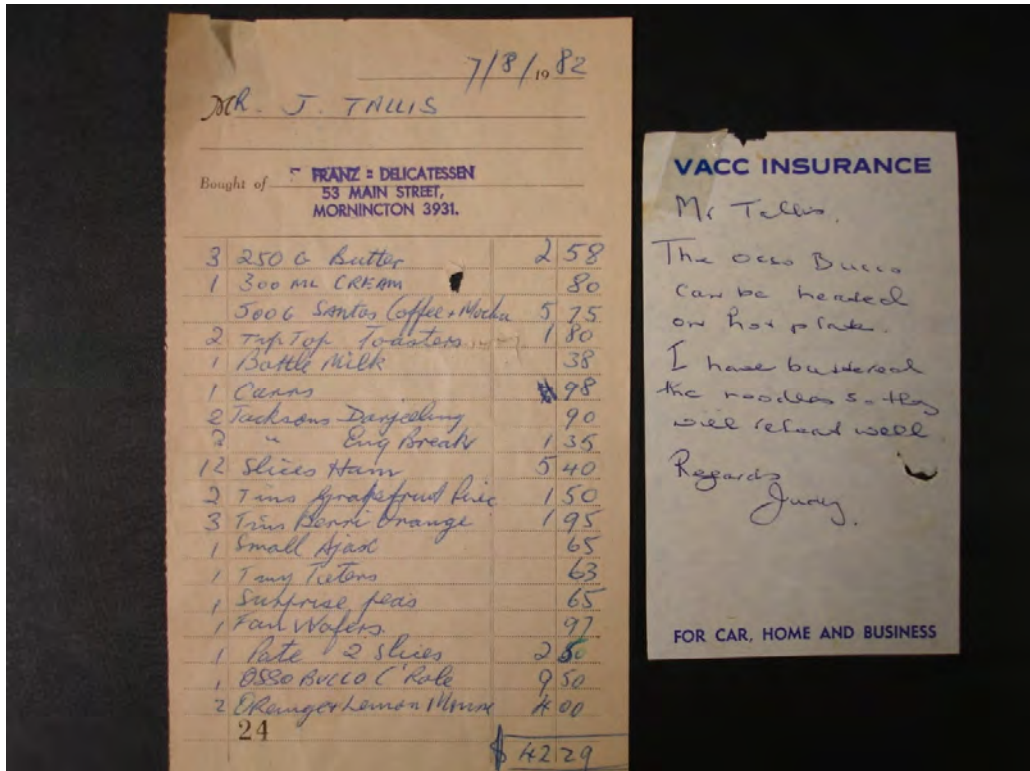 7/8/1982
MR. J. TALLIS
Bought of FRANZ = DELICATESSEN
53 MAIN STREET,
MORNINGTON 3931.
3 250 G Butter 2 58
1 300 ML CREAM 80
500 G Santos Coffee + Mocha 5 75
2 Tip Top Toasters 1 80
1 Bottle Milk 38
1 Carrs 98
2 Jacksons Darjeeling 90
" Eng Break 1 35
12 Slices Ham 5 40
2 Tins Grapefruit 1 50
3 Tins Berri Orange 1 95
1 Small Ajax 65
1 63
1 Surprise peas 65
1 Fan Wafers 97
1 Pate 2 Slices 2 50
1 OSSO BUCCO C' Role 9 50
2 Orange + Lemon 4 00
24
$ 42 29
VACC INSURANCE
Mr Tallis,
The Osso Bucco
can be heated
on hot plate.
I have buttered
the noodles so they
will reheat well.
Regards
Judy.
FOR CAR, HOME AND BUSINESS